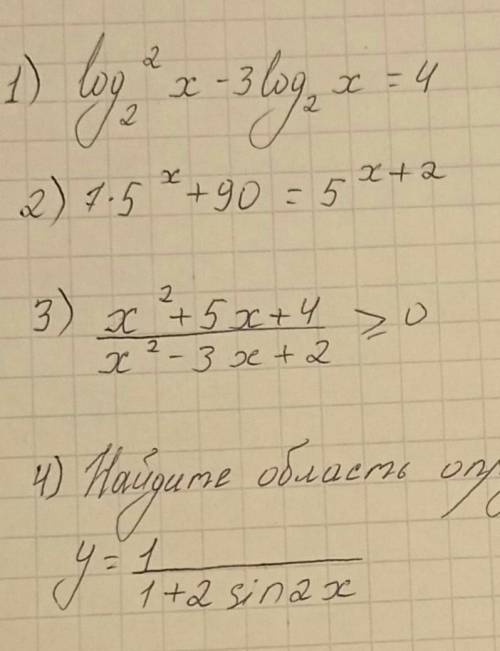 1) log₂² x - 3 log₂ x = 4
2) 7·5^x + 90 = 5^(x+2)
3) (x² + 5x + 4)/(x² - 3x + 2) ≥ 0
4) Найдите область опр
y = 1/(1 + 2 sin 2x)